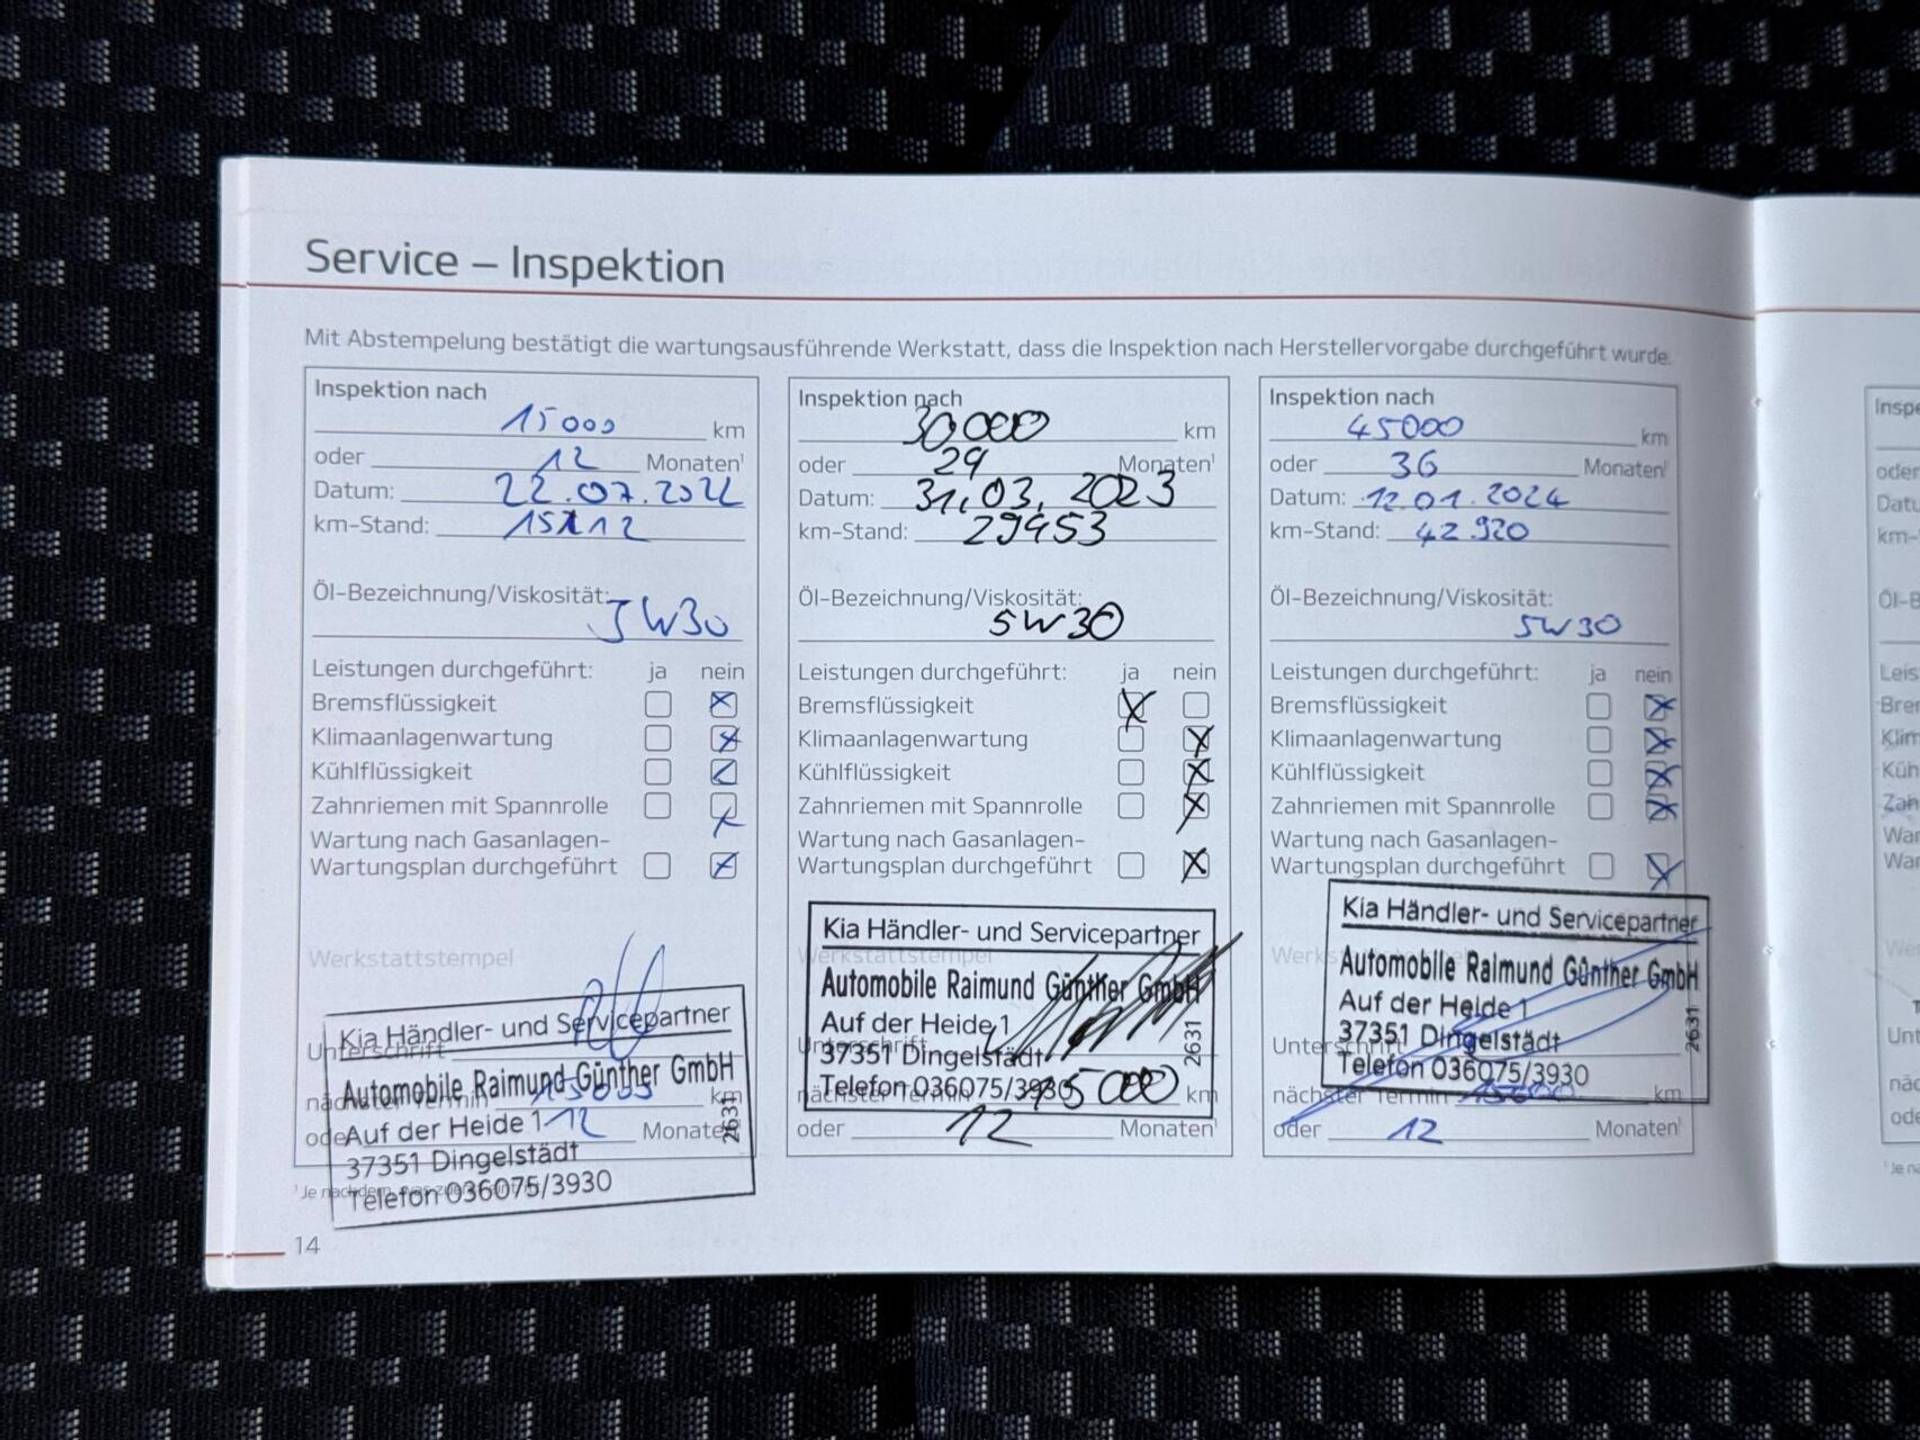 Service – Inspektion
Mit Abstempelung bestätigt die wartungsausführende Werkstatt, dass die Inspektion nach Herstellervorgabe durchgeführt wurde.
Inspektion nach
15000 km
oder 12 Monaten¹
Datum: 22.07.2022
km-Stand: 15112
Öl-Bezeichnung/Viskosität:
5W30
Leistungen durchgeführt: ja nein
Bremsflüssigkeit
Klimaanlagenwartung
Kühlflüssigkeit
Zahnriemen mit Spannrolle
Wartung nach Gasanlagen-
Wartungsplan durchgeführt
Werkstattstempel
Kia Händler- und Servicepartner
Unterschrift
Automobile Raimund Günther GmbH
nächster Termin 15000 km
Auf der Heide 1
oder 12 Monaten
37351 Dingelstädt
Telefon 036075/3930
2631
Inspektion nach
30000 km
oder 29 Monaten¹
Datum: 31.03.2023
km-Stand: 29453
Öl-Bezeichnung/Viskosität:
5W30
Leistungen durchgeführt: ja nein
Bremsflüssigkeit
Klimaanlagenwartung
Kühlflüssigkeit
Zahnriemen mit Spannrolle
Wartung nach Gasanlagen-
Wartungsplan durchgeführt
Kia Händler- und Servicepartner
Werkstattstempel
Automobile Raimund Günther GmbH
Auf der Heide 1
Unterschrift
37351 Dingelstädt
Telefon 036075/3930
2631
nächster Termin 15000 km
oder 12 Monaten¹
Inspektion nach
45000 km
oder 36 Monaten¹
Datum: 12.01.2024
km-Stand: 42.920
Öl-Bezeichnung/Viskosität:
5W30
Leistungen durchgeführt: ja nein
Bremsflüssigkeit
Klimaanlagenwartung
Kühlflüssigkeit
Zahnriemen mit Spannrolle
Wartung nach Gasanlagen-
Wartungsplan durchgeführt
Kia Händler- und Servicepartner
Werkstattstempel
Automobile Raimund Günther GmbH
Auf der Heide 1
37351 Dingelstädt
Unterschrift
Telefon 036075/3930
2631
nächster Termin 15000 km
oder 12 Monaten¹
¹ Je nachdem, was zuerst
14
oder